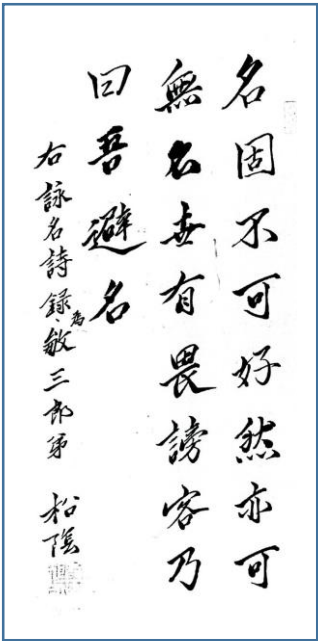 名固不可好然亦可
無名世有畏謗客乃
曰吾避名
右詠名詩録為敏三郎弟 松陰